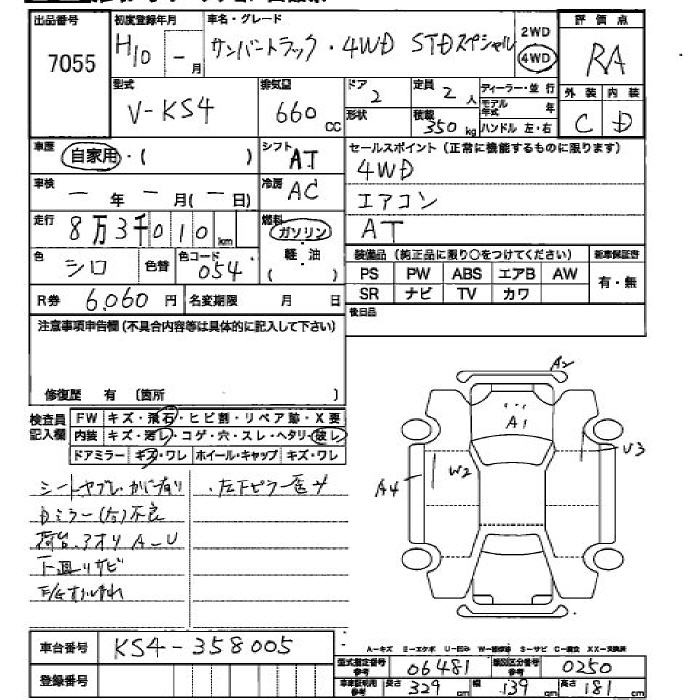 出品番号 初度登録年月 車名・グレード 2WD 評価点
7055 H10 - 月 サンバートラック・4WD STDスペシャル 4WD RA
型式 排気量 ドア 定員 人 ディーラー・並行 外装 内装
V-KS4 660 CC 2 2 モデル年式 年 C D
形状 積載 350 kg ハンドル 左・右
車歴 自家用・( ) シフト AT セールスポイント (正常に機能するものに限ります)
車検 - 年 - 月(- 日) 冷房 AC 4WD
エアコン
走行 8万3千010 km 燃料 ガソリン AT
軽・油
( )
色 シロ 色替 色コード 054 装備品 (純正品に限り○をつけてください) 新車保証書
PS PW ABS エアB AW 有・無
SR ナビ TV カワ
R券 6,060 円 名変期限 月 日 後日品
注意事項申告欄(不具合内容等は具体的に記入して下さい)
修復歴 有 (箇所 )
検査員記入欄 FW キズ・飛石・ヒビ割・リペア跡・X要
内装 キズ・汚レ・コゲ・穴・スレ・ヘタリ・破レ
ドアミラー キズ・ワレ ホイール・キャップ キズ・ワレ
A2
A1
U3
W2
A4
シートヤブレ
ミラー(右)不良
荷台、アオリ A-U
下回りサビ
車台番号 KS4-358005
A-キズ E-エクボ U-凹み W-補修跡 S-サビ C-腐食 XX-交換済
登録番号 型式指定番号参考 06481 類別区分番号参考 0250
車庫証明用参考 長さ 329 cm 幅 139 cm 高さ 181 cm